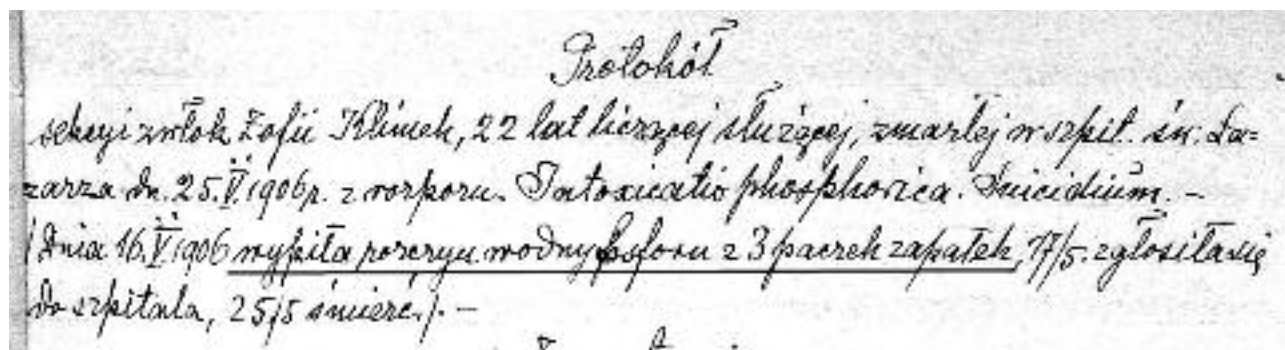 Protokół
sekcyi zwłok Zofii Klimek, 22 lat liczącej służącej, zmarłej w szpit. św. Ła=
zarza dn. 25. V. 1906 r. z rozpozn. Intoxicatio phosphorica. Suicidium. –
/Dnia 16. V 1906 wypiła rozczyn wodny fosforu z 3 paczek zapałek, 17/5. zgłosiła się
do szpitala, 25/5 śmierć./. –